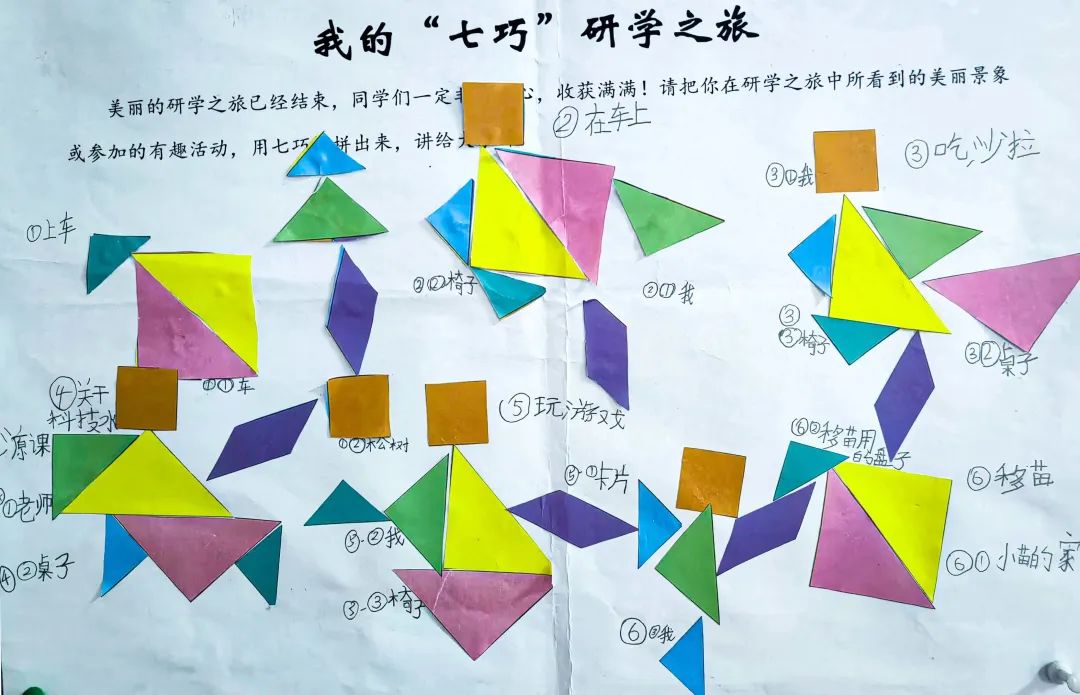 我的“七巧”研学之旅
美丽的研学之旅已经结束，同学们一定 心，收获满满！请把你在研学之旅中所看到的美丽景象
或参加的有趣活动，用七巧 拼出来，讲给
②在车上
③吃沙拉
③①我
①上车
③②椅子
②①我
③
③椅子
③②桌子
①①车
④关于
科技水
源课
⑤玩游戏
①②松树
⑥②移苗用
的盘子
⑤-①卡片
⑥移苗
①老师
⑤-②我
④②桌子
⑥①小苗的家
⑤-③椅子
⑥③我